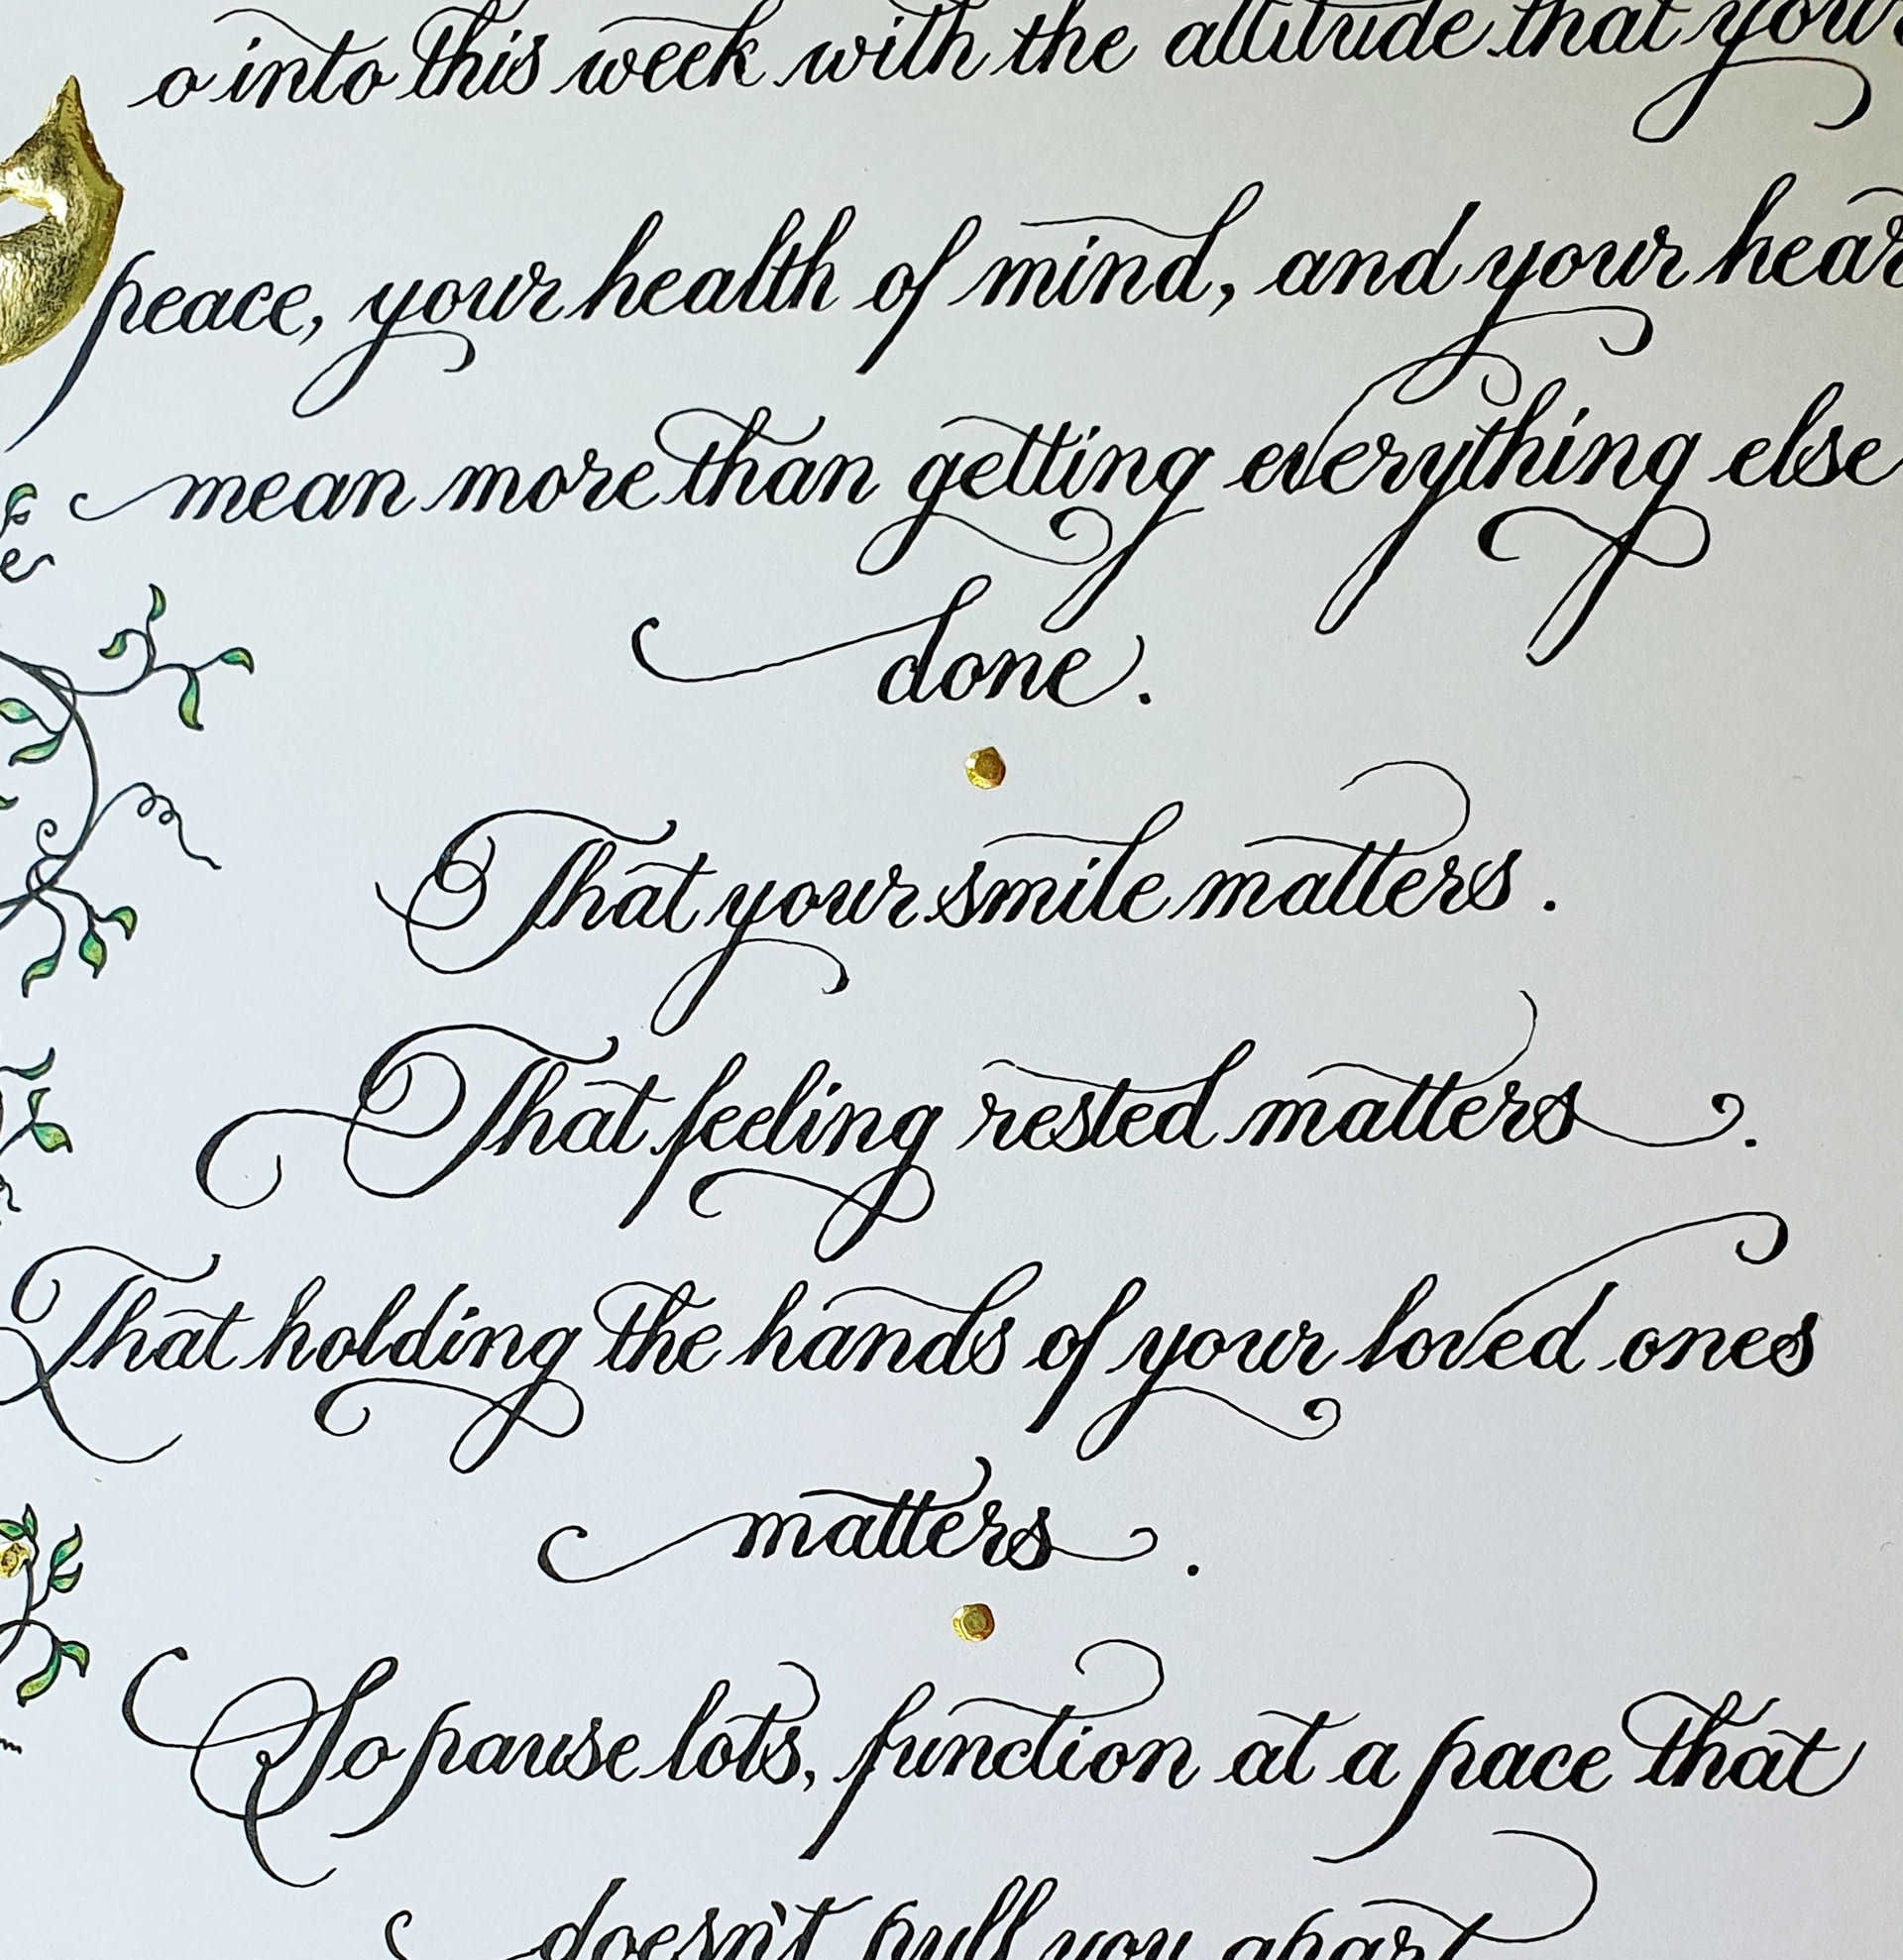 o into this week with the attitude that your
peace, your health of mind, and your hear
mean more than getting everything else
done.
That your smile matters.
That feeling rested matters.
That holding the hands of your loved ones
matters.
So pause lots, function at a pace that
doesn't pull you apart